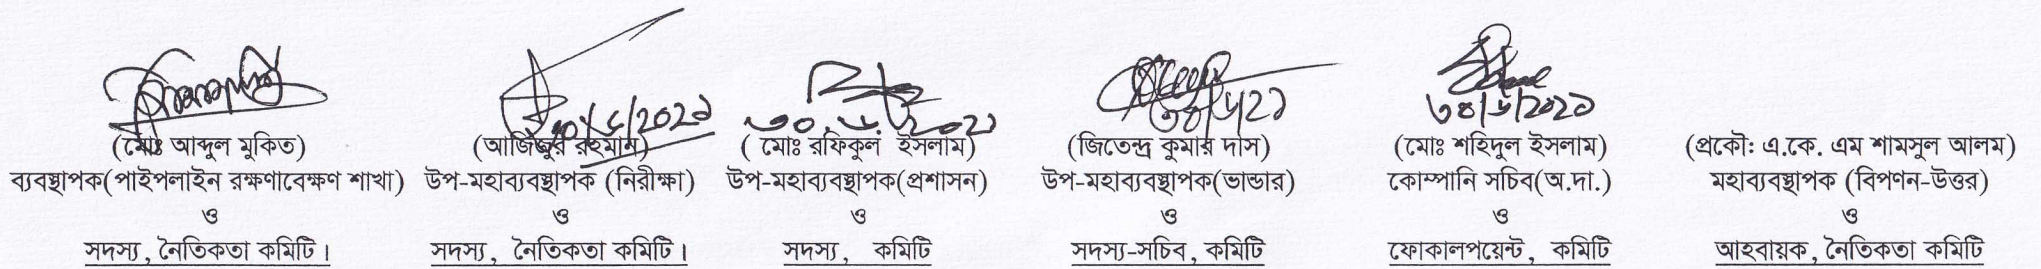 ৩০/৬/২০২১
৩০.৬.২০২১
৩০/৬/২১
৩০/৬/২০২১
(মোঃ আব্দুল মুকিত)
ব্যবস্থাপক(পাইপলাইন রক্ষণাবেক্ষণ শাখা)
ও
সদস্য, নৈতিকতা কমিটি।
(আজিজুর রহমান)
উপ-মহাব্যবস্থাপক (নিরীক্ষা)
ও
সদস্য, নৈতিকতা কমিটি।
(মোঃ রফিকুল ইসলাম)
উপ-মহাব্যবস্থাপক(প্রশাসন)
ও
সদস্য, কমিটি
(জিতেন্দ্র কুমার দাস)
উপ-মহাব্যবস্থাপক(ভান্ডার)
ও
সদস্য-সচিব, কমিটি
(মোঃ শহিদুল ইসলাম)
কোম্পানি সচিব(অ.দা.)
ও
ফোকালপয়েন্ট, কমিটি
(প্রকৌ: এ.কে. এম শামসুল আলম)
মহাব্যবস্থাপক (বিপণন-উত্তর)
ও
আহবায়ক, নৈতিকতা কমিটি